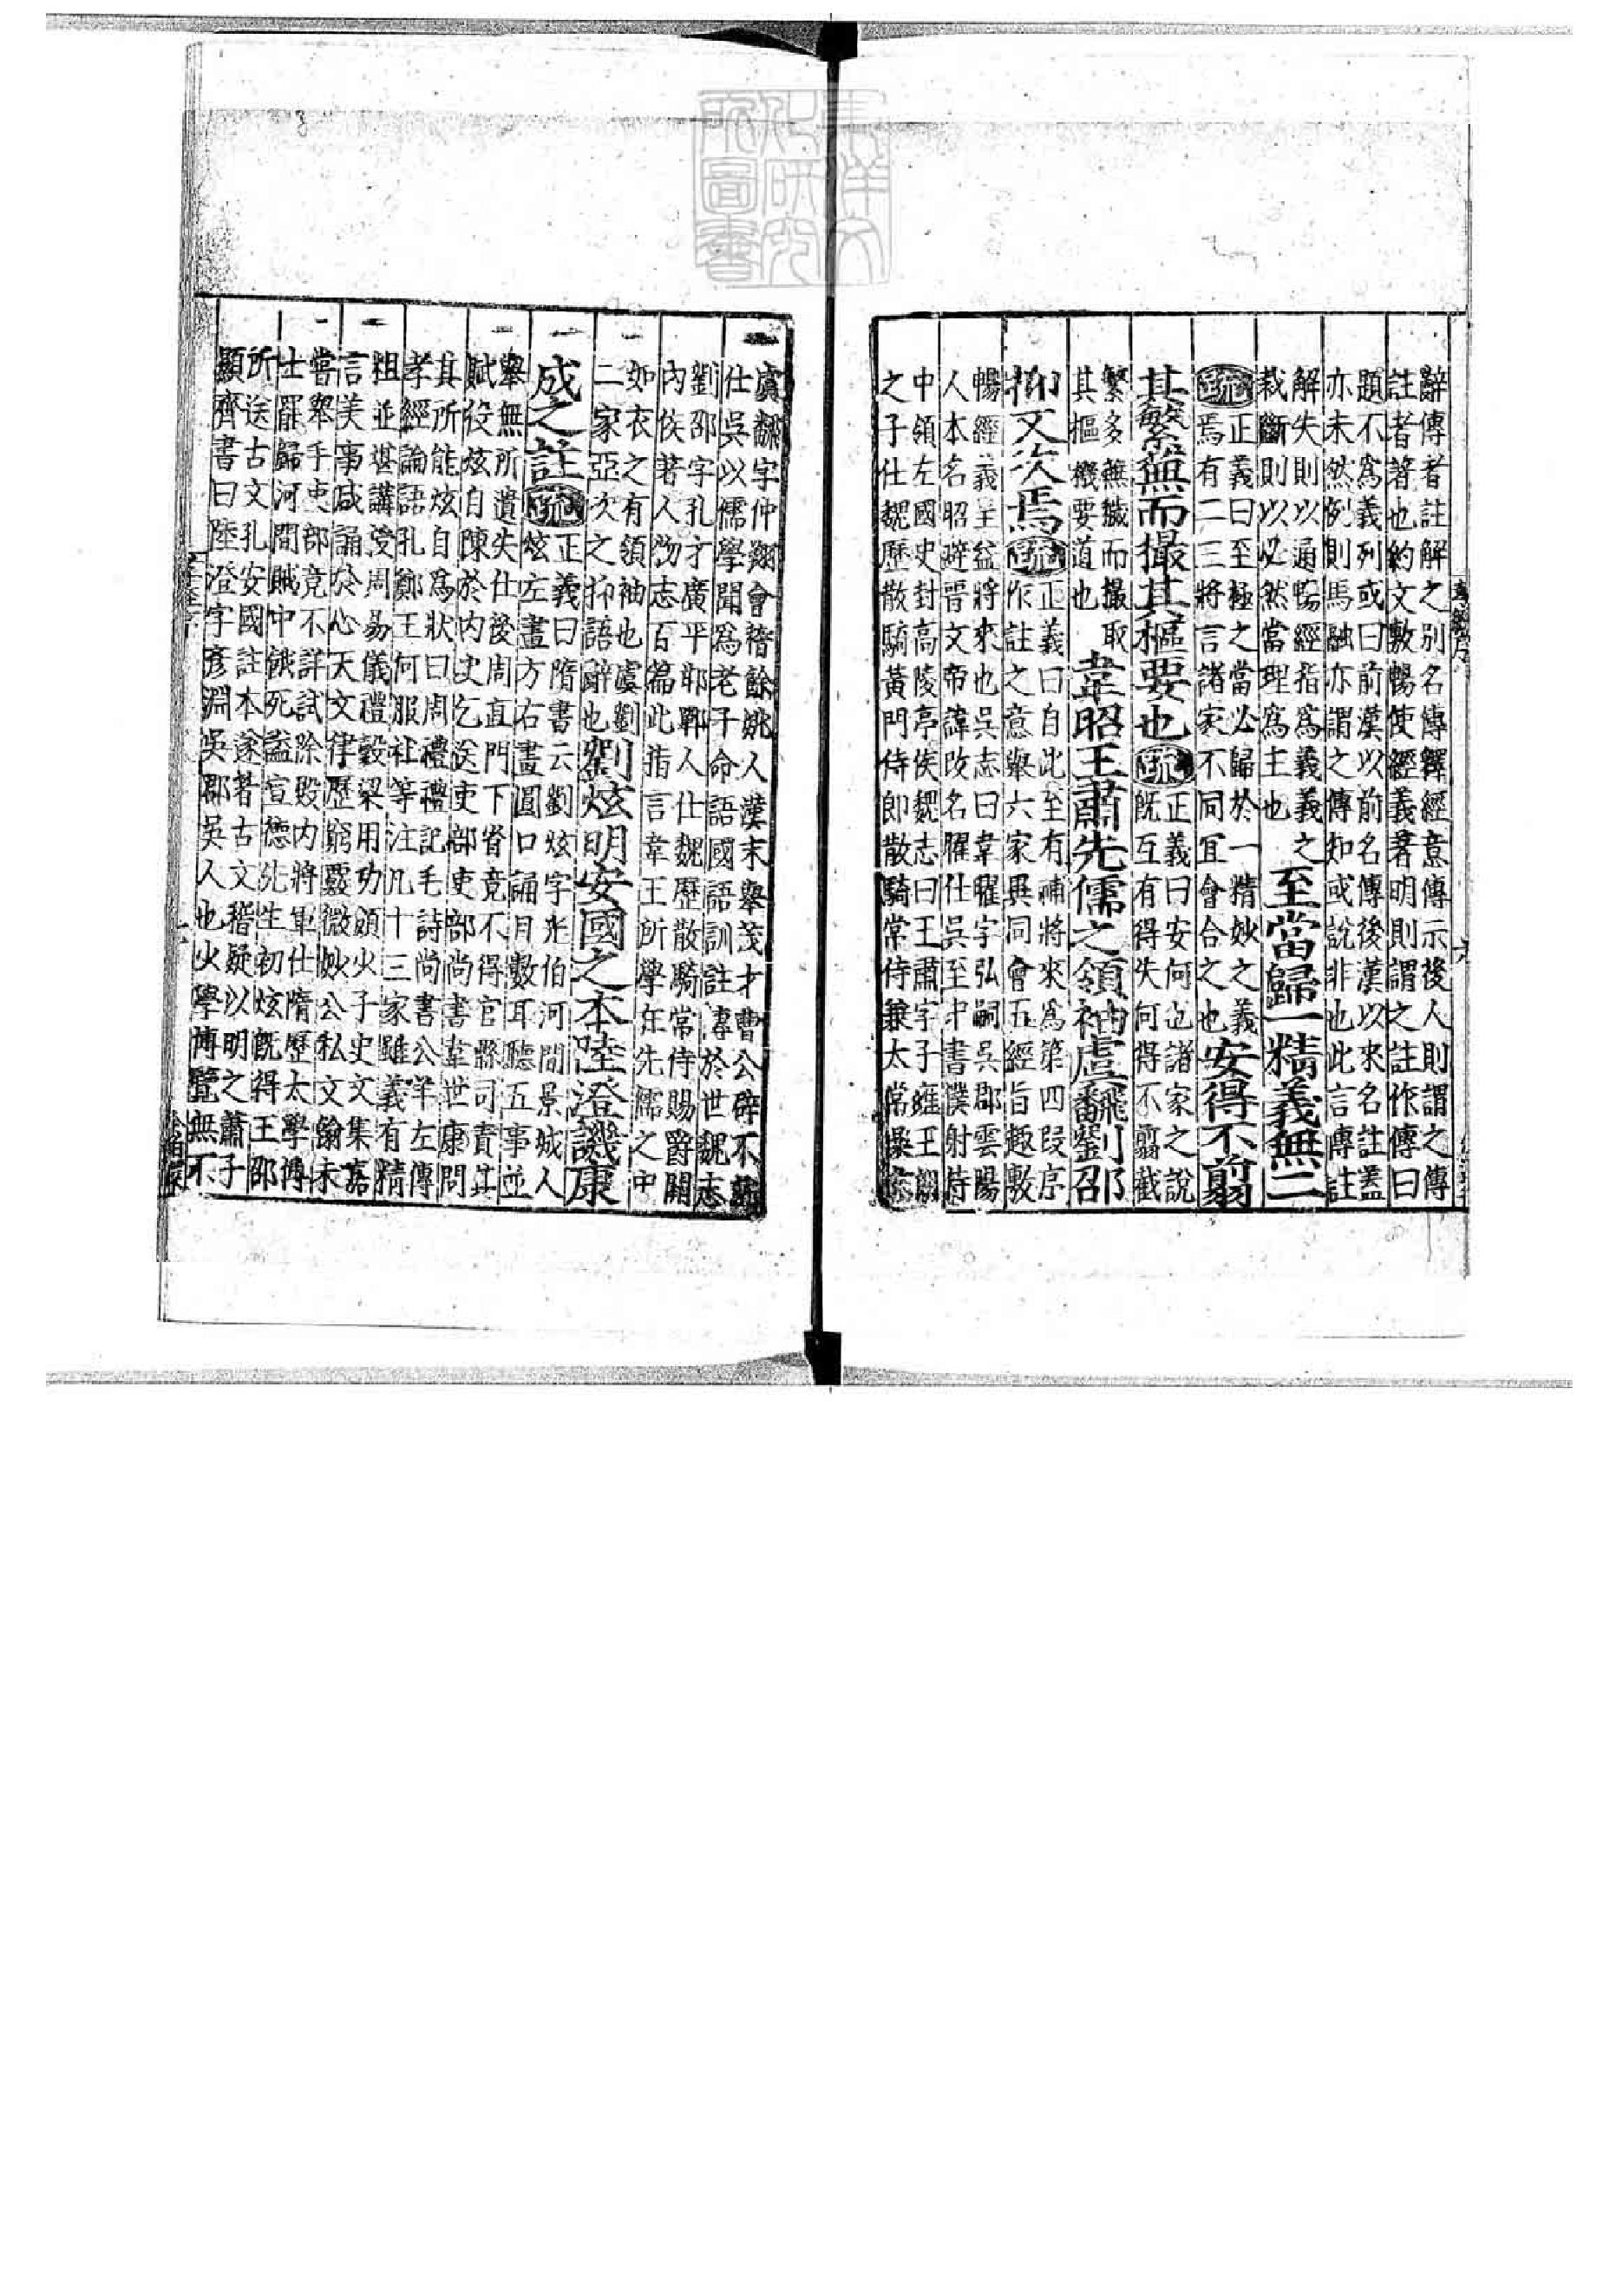 辭傳者註解之別名傳釋經意傳示後人則謂之傳
註者著也約文敷暢使經義著明則謂之註作傳曰
題不為義列或曰前漢以前名傳後漢以來名註蓋
亦未然例則馬融亦謂之傳知或說非也此言傳註
解失則以通暢經指為義義之
裁斷則以必然當理為主也
至當歸一精義無二
疏正義曰至極之當必歸於一精妙之義
焉有二三將言諸家不同宜會合之也
安得不翦
其繁蕪而撮其樞要也
疏正義曰安何也諸家之說
既互有得失何得不翦截
繁多蕪穢而撮取
其樞機要道也
韋昭王肅先儒之領袖虞翻劉邵
抑又次焉
疏正義曰自此至有補將來為第四段序
作註之意舉六家異同會五經旨趣敷
暢經義望益將來也吳志曰韋曜字弘嗣吳郡雲陽
人本名昭避晋文帝諱改名曜仕吳至中書僕射侍
中領左國史封高陵亭侯魏志曰王肅字子雍王朗
之子仕魏歷散騎黃門侍郎散騎常侍兼太常
虞翻字仲翔會稽餘姚人漢末舉茂才曹公辟不就
仕吳以儒學聞為老子命語國語訓註傳於世魏志
劉邵字孔才廣平邯鄲人仕魏歷散騎常侍賜爵關
內侯著人物志百篇此指言韋王所學在先儒之中
如衣之有領袖也虞劉
二家亞次之抑語辭也
劉炫明安國之本陸澄譏康
成之註
疏正義曰隋書云劉炫字光伯河間景城人
炫左畫方右畫圓口誦目數耳聽五事並
舉無所遺失仕後周直門下省竟不得官縣司責其
賦役炫自陳於內史乞送吏部吏部尚書韋世康問
其所能炫自為狀曰周禮禮記毛詩尚書公羊左傳
孝經論語孔鄭王何服杜等注凡十三家雖義有精
粗並堪講受周易儀禮穀梁用功頗少子史文集嘉
言美事咸誦於心天文律歷窮覈微妙公私文翰未
嘗舉手吏部竟不詳試除殿內將軍仕隋歷太學博
士罷歸河間賊中餓死謚宣德先生初炫既得王邵
所送古文孔安國註本遂著古文稽疑以明之蕭子
顯齊書曰陸澄字彦淵吳郡吳人也少學博覽無不